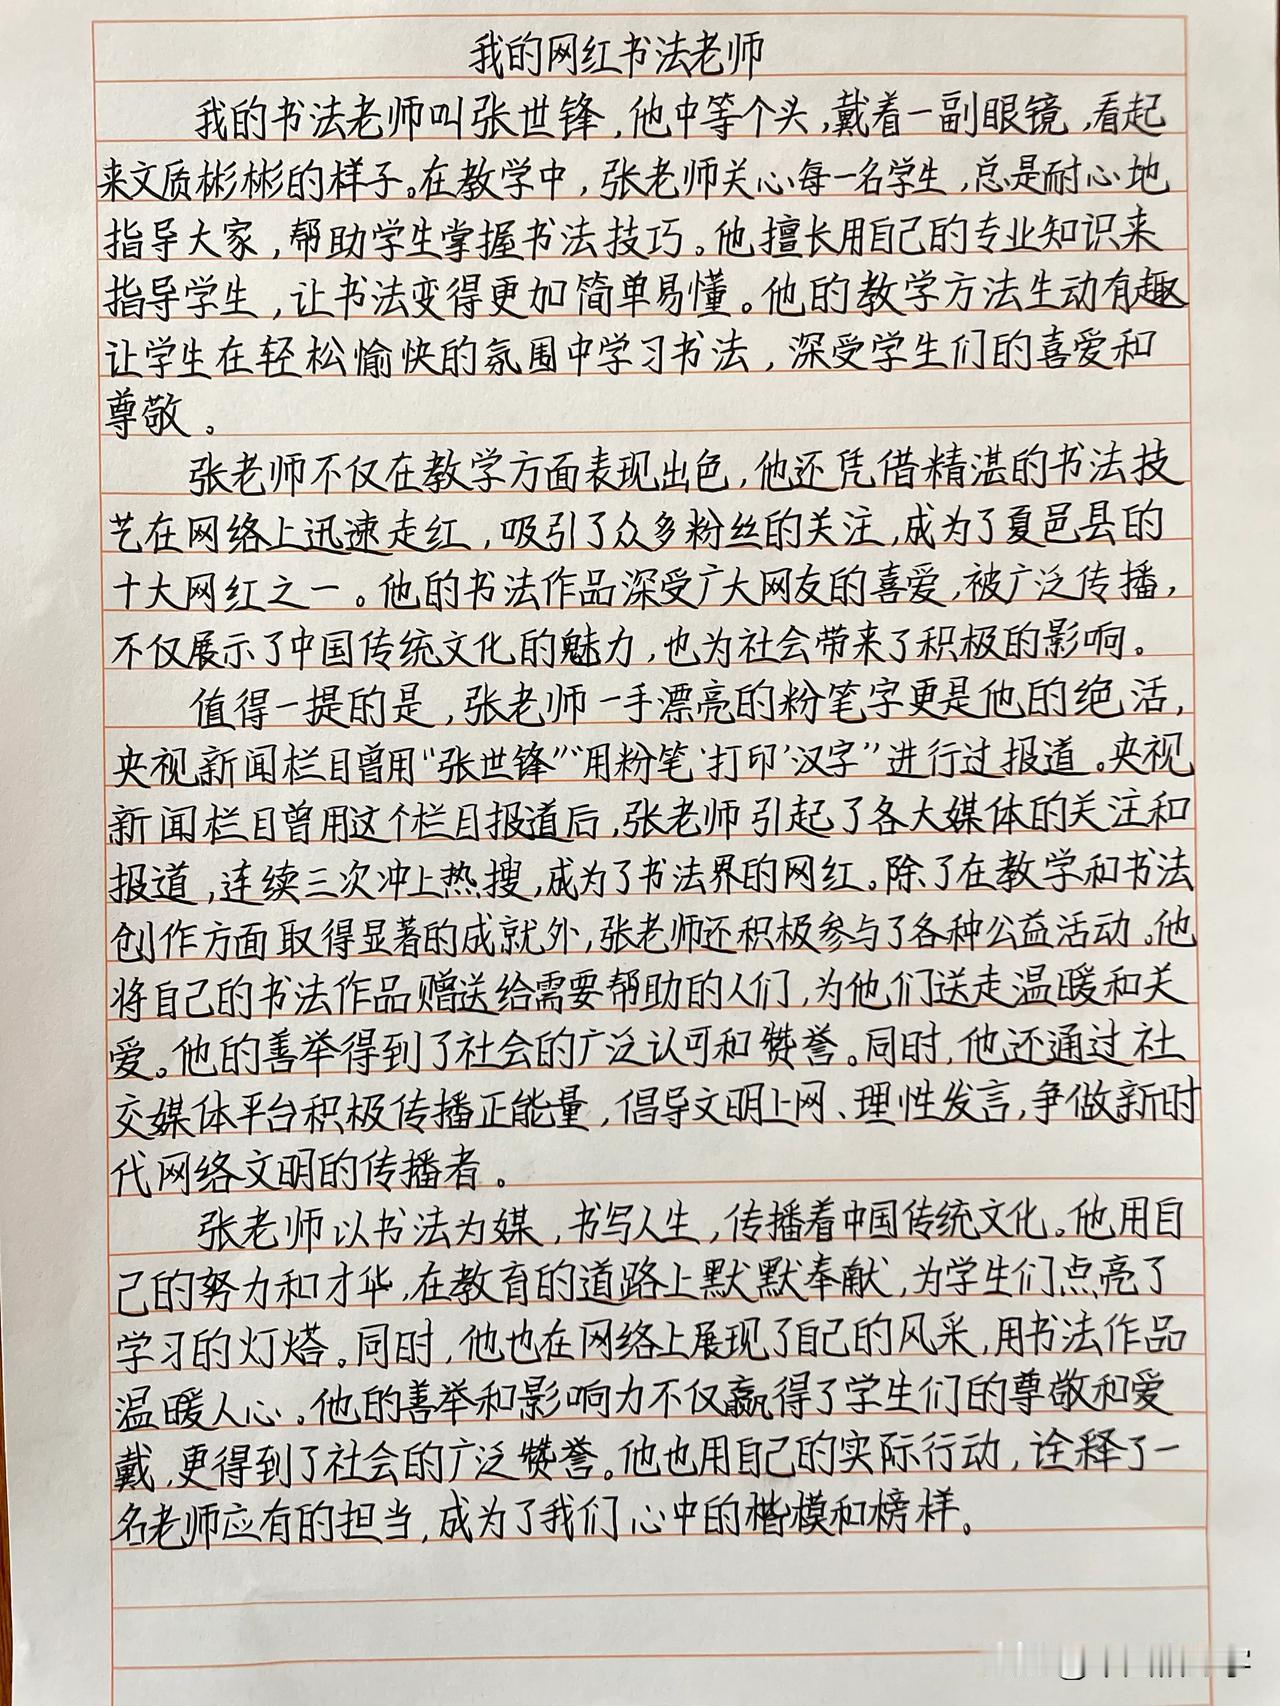 我的网红书法老师
我的书法老师叫张世锋,他中等个头,戴着一副眼镜,看起
来文质彬彬的样子。在教学中,张老师关心每一名学生,总是耐心地
指导大家,帮助学生掌握书法技巧。他擅长用自己的专业知识来
指导学生,让书法变得更加简单易懂。他的教学方法生动有趣
让学生在轻松愉快的氛围中学习书法,深受学生们的喜爱和
尊敬。
张老师不仅在教学方面表现出色,他还凭借精湛的书法技
艺在网络上迅速走红,吸引了众多粉丝的关注,成为了夏邑县的
十大网红之一。他的书法作品深受广大网友的喜爱,被广泛传播,
不仅展示了中国传统文化的魅力,也为社会带来了积极的影响。
值得一提的是,张老师一手漂亮的粉笔字更是他的绝活,
央视新闻栏目曾用“张世锋”“用粉笔‘打印’汉字”进行过报道。央视
新闻栏目曾用这个栏目报道后,张老师引起了各大媒体的关注和
报道,连续三次冲上热搜,成为了书法界的网红。除了在教学和书法
创作方面取得显著的成就外,张老师还积极参与了各种公益活动。他
将自己的书法作品赠送给需要帮助的人们,为他们送走温暖和关
爱。他的善举得到了社会的广泛认可和赞誉。同时,他还通过社
交媒体平台积极传播正能量,倡导文明上网、理性发言,争做新时
代网络文明的传播者。
张老师以书法为媒,书写人生,传播着中国传统文化。他用自
己的努力和才华,在教育的道路上默默奉献,为学生们点亮了
学习的灯塔。同时,他也在网络上展现了自己的风采,用书法作品
温暖人心。他的善举和影响力不仅赢得了学生们的尊敬和爱
戴,更得到了社会的广泛赞誉。他也用自己的实际行动,诠释了一
名老师应有的担当,成为了我们心中的楷模和榜样。